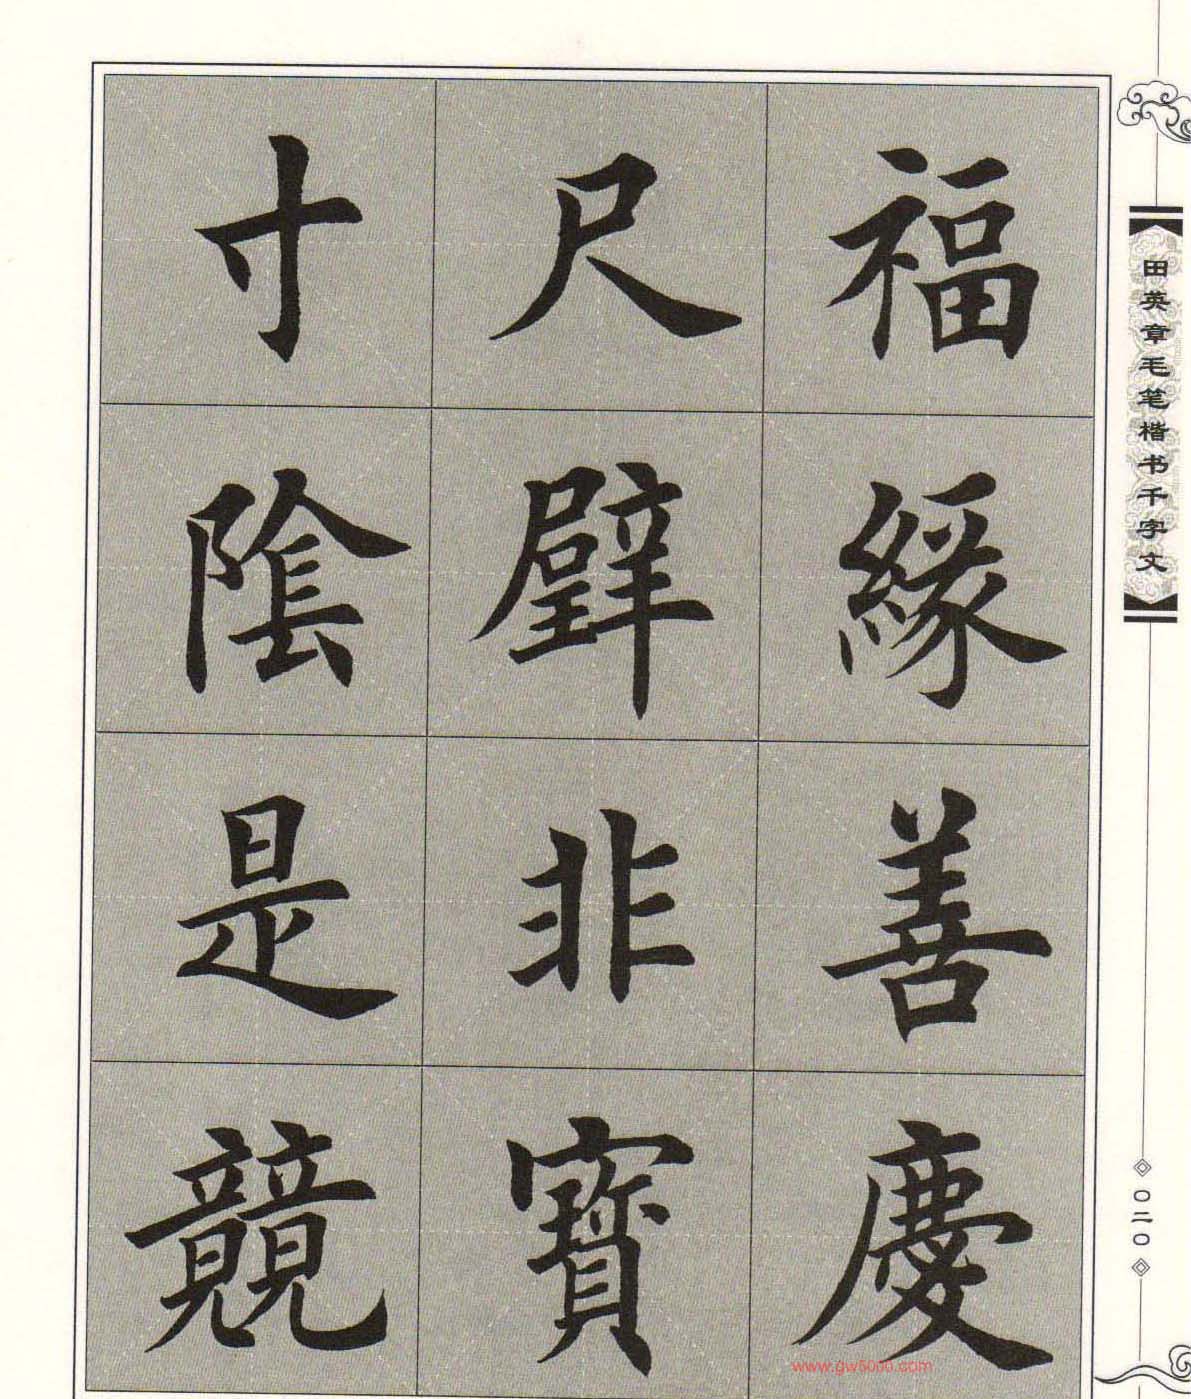 福緣善慶
尺璧非寶
寸陰是競
田英章毛笔楷书千字文
〇二〇
www.gw5000.com